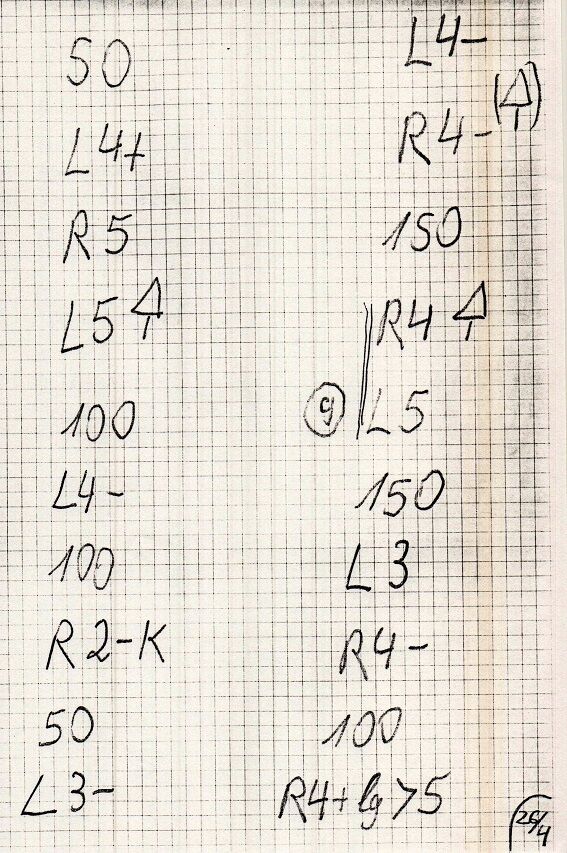 50
L4+
R5
L5
100
L4-
100
R2-K
50
L3-
L4-
R4-
150
R4
L5
150
L3
R4-
100
R4+ lg >5